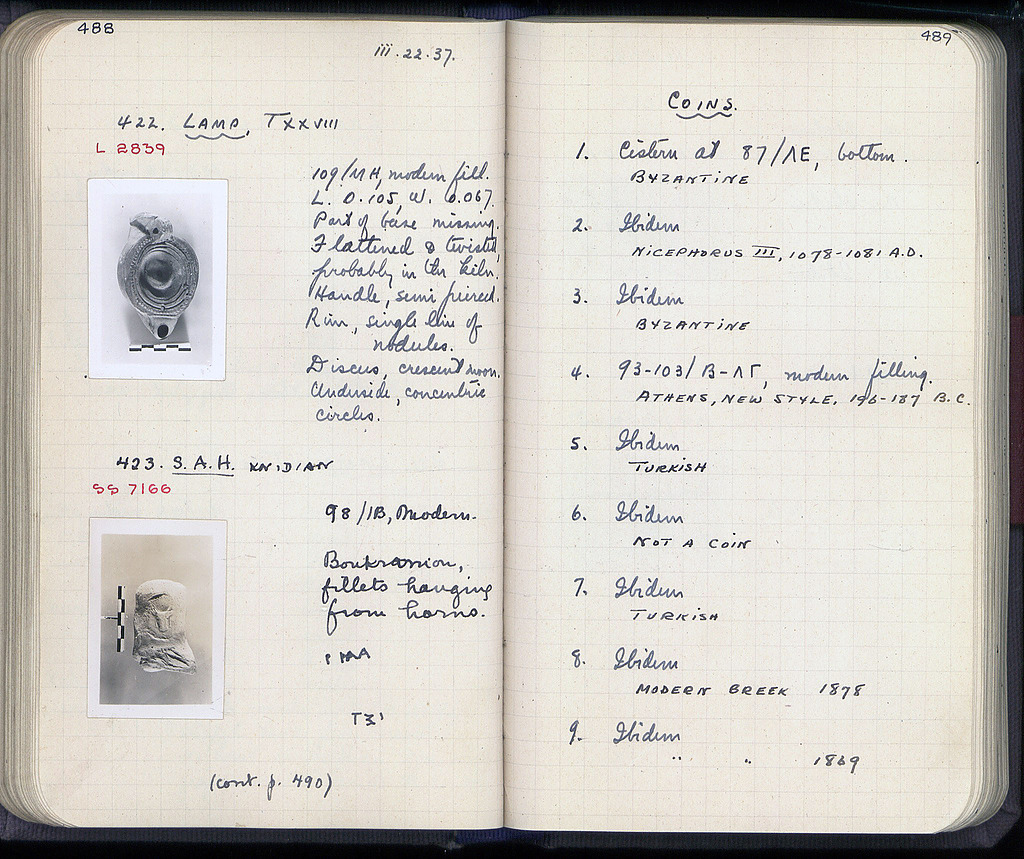 488
iii.22.37.
422. LAMP, TXXVIII
L 2839
109/ΜΗ, modern fill.
L. 0.105, W. 0.067.
Part of base missing.
Flattened & twisted,
probably in the kiln.
Handle, semi pierced.
Rim, single line of
nodules.
Discus, crescent moon.
Underside, concentric
circles.
423. S.A.H. KNIDIAN
SS 7166
98/ΙΒ, Modern.
Boukranion,
fillets hanging
from horns.
(cont. p. 490)
489
COINS.
1. Cistern at 87/ΛΕ, bottom.
BYZANTINE
2. Ibidem
NICEPHORUS III, 1078-1081 A.D.
3. Ibidem
BYZANTINE
4. 93-103/Β-ΛΓ, modern filling.
ATHENS, NEW STYLE, 196-187 B.C.
5. Ibidem
TURKISH
6. Ibidem
NOT A COIN
7. Ibidem
TURKISH
8. Ibidem
MODERN GREEK 1878
9. Ibidem
" " 1869